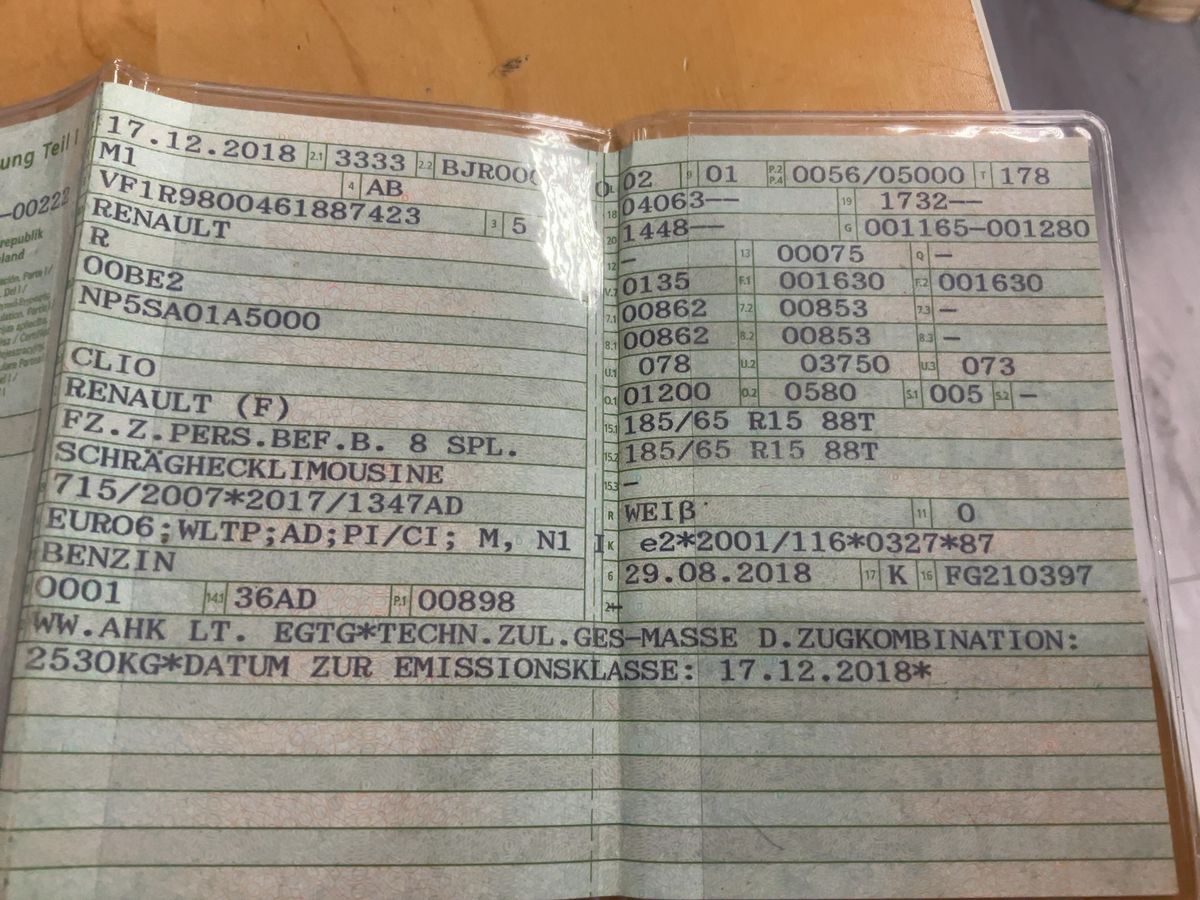 ung Teil I
-00222
republik
land
17.12.2018 2.1 3333 2.2 BJR000
M1 4 AB
VF1R9800461887423 3 5
RENAULT
R
OOBE2
NP5SA01A5000
CLIO
RENAULT (F)
FZ.Z.PERS.BEF.B. 8 SPL.
SCHRÄGHECKLIMOUSINE
715/2007*2017/1347AD
EURO6;WLTP;AD;PI/CI; M, N1 I
BENZIN
0001 14.1 36AD P.1 00898
L 02 9 01 P.2 P.4 0056/05000 T 178
18 04063-- 19 1732--
20 1448-- G 001165-001280
12 - 13 00075 Q -
V.7 0135 F.1 001630 F.2 001630
7.1 00862 7.2 00853 7.3 -
8.1 00862 8.2 00853 8.3 -
U.1 078 U.2 03750 U.3 073
O.1 01200 O.2 0580 S.1 005 S.2 -
15.1 185/65 R15 88T
15.2 185/65 R15 88T
15.3 -
R WEIß 11 0
K e2*2001/116*0327*87
6 29.08.2018 17 K 16 FG210397
21 -
WW.AHK LT. EGTG*TECHN.ZUL.GES-MASSE D.ZUGKOMBINATION:
2530KG*DATUM ZUR EMISSIONSKLASSE: 17.12.2018*